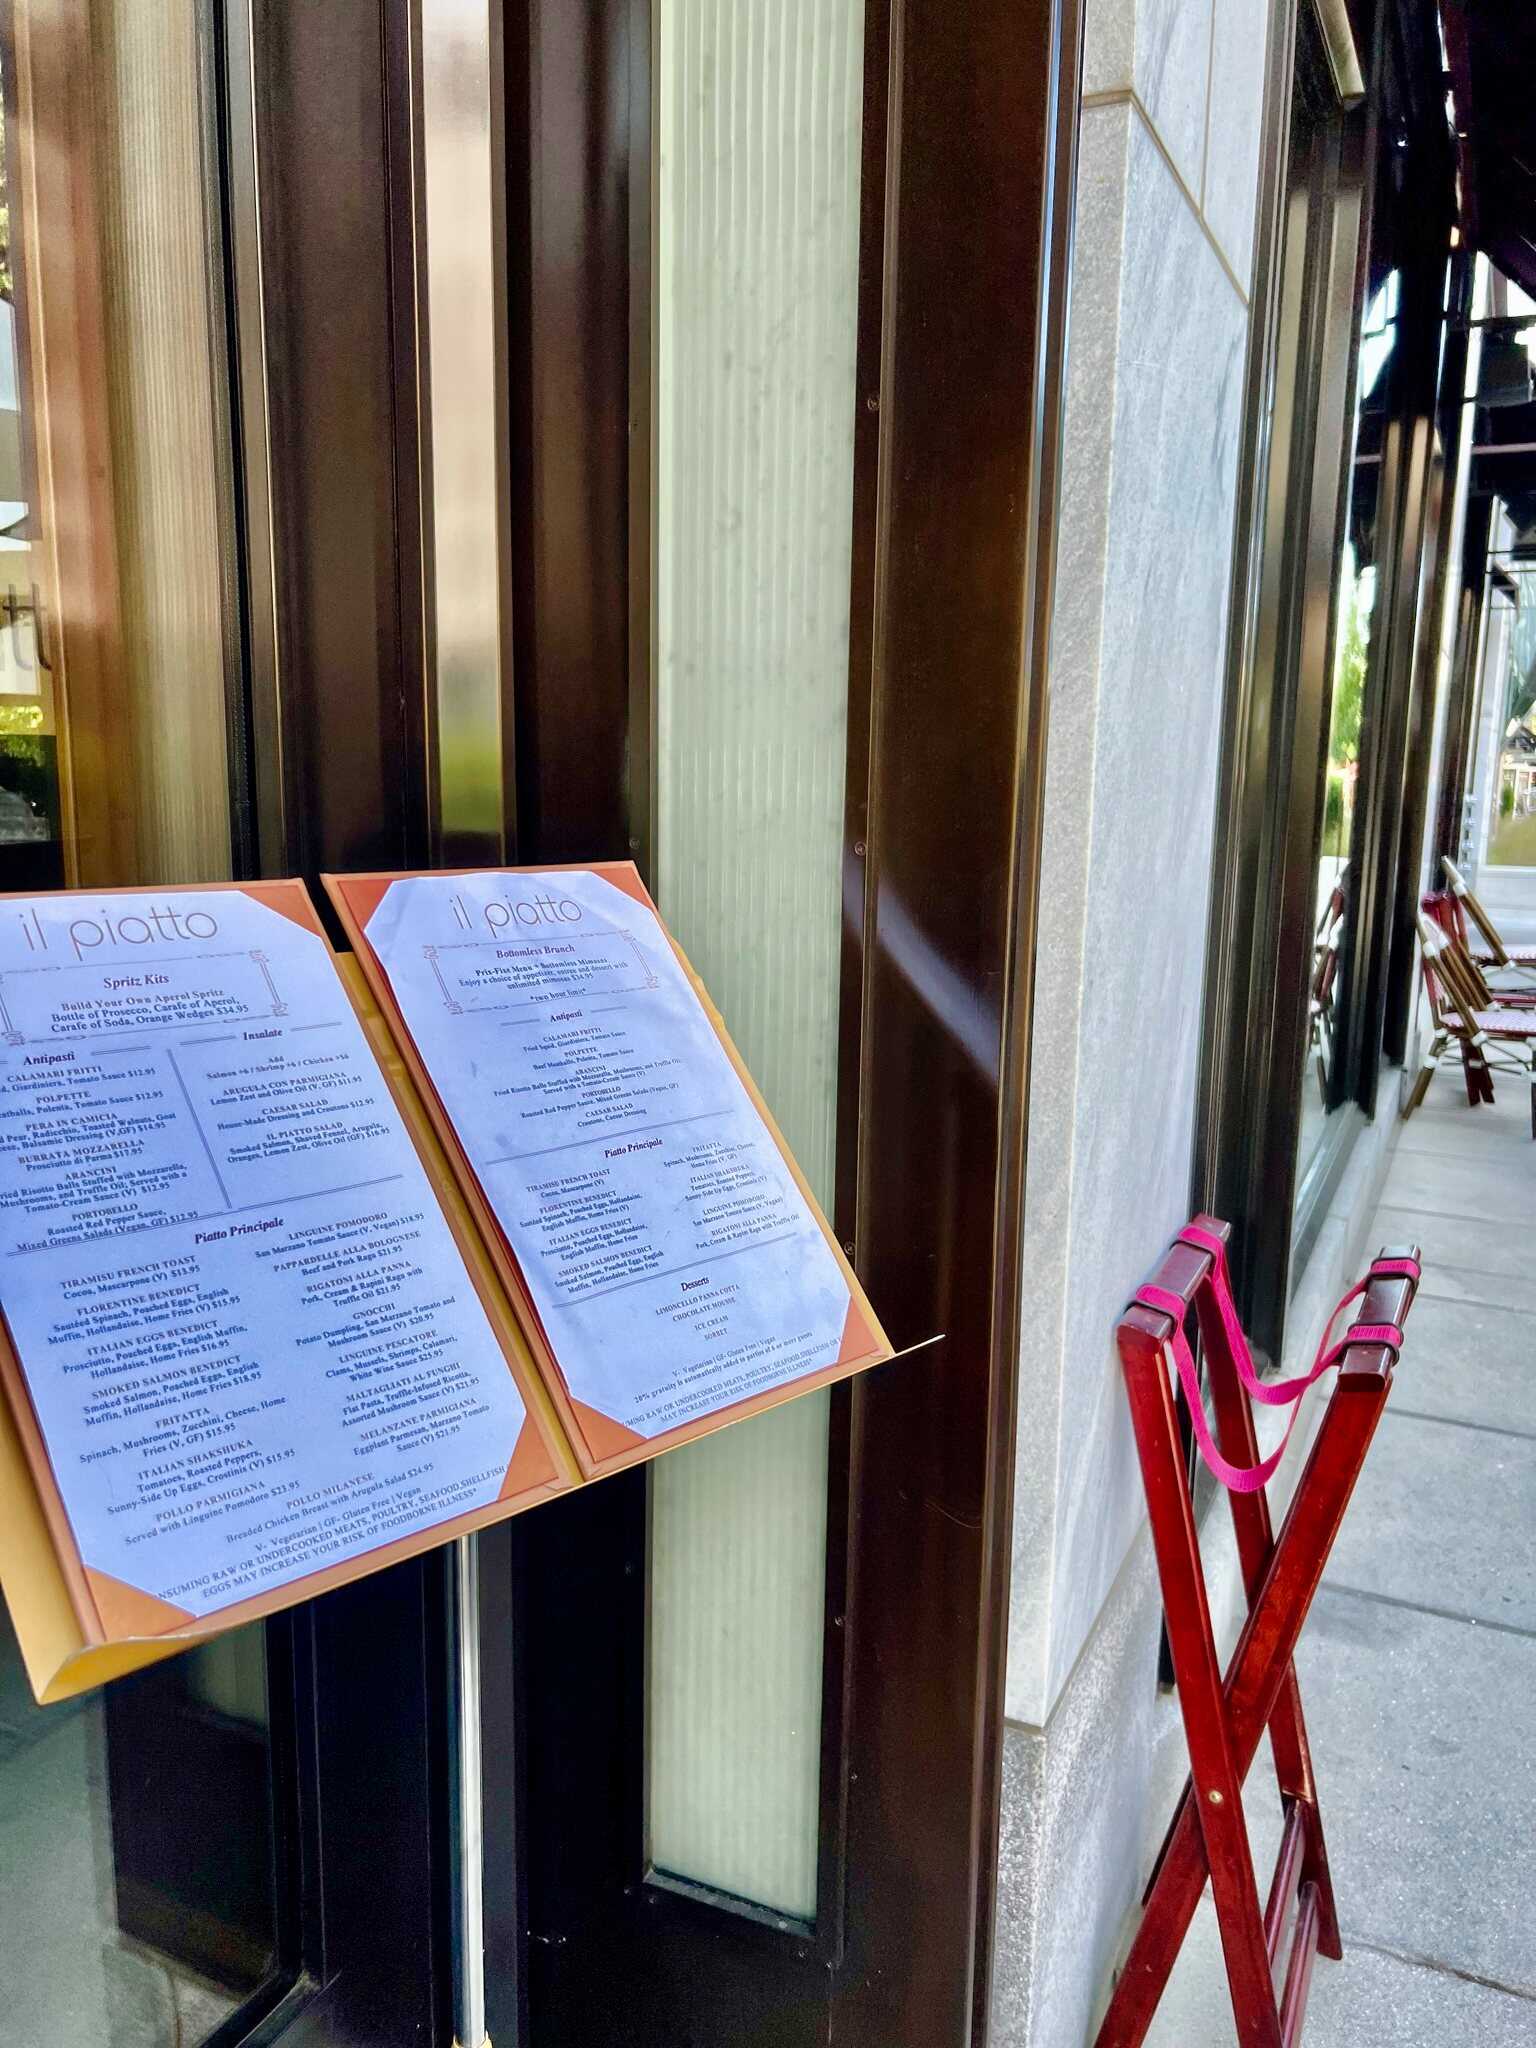 il piatto
Spritz Kits
Build Your Own Aperol Spritz
Bottle of Prosecco, Carafe of Aperol,
Carafe of Soda, Orange Wedges $34.95
Antipasti
CALAMARI FRITTI
Giardiniera, Tomato Sauce $12.95
POLPETTE
Polenta, Tomato Sauce $12.95
PERA IN CAMICIA
Pear, Radicchio, Toasted Walnuts, Goat
Balsamic Dressing (V,GF) $14.95
BURRATA MOZZARELLA
Prosciutto di Parma $17.95
ARANCINI
Risotto Balls Stuffed with Mozzarella,
Mushrooms, and Truffle Oil; Served with a
Tomato-Cream Sauce (V) $12.95
PORTOBELLO
Roasted Red Pepper Sauce,
Mixed Greens Salads (Vegan, GF) $12.95
Insalate
Add
Salmon +6 / Shrimp +6 / Chicken +$6
ARUGULA CON PARMIGIANA
Lemon Zest and Olive Oil (V, GF) $11.95
CAESAR SALAD
House-Made Dressing and Croutons $12.95
IL PIATTO SALAD
Smoked Salmon, Shaved Fennel, Arugula,
Oranges, Lemon Zest, Olive Oil (GF) $16.95
Piatto Principale
TIRAMISU FRENCH TOAST
Cocoa, Mascarpone (V) $13.95
FLORENTINE BENEDICT
Sautéed Spinach, Poached Eggs, English
Muffin, Hollandaise, Home Fries (V) $15.95
ITALIAN EGGS BENEDICT
Prosciutto, Poached Eggs, English Muffin,
Hollandaise, Home Fries $16.95
SMOKED SALMON BENEDICT
Smoked Salmon, Poached Eggs, English
Muffin, Hollandaise, Home Fries $18.95
FRITATTA
Spinach, Mushrooms, Zucchini, Cheese, Home
Fries (V, GF) $15.95
ITALIAN SHAKSHUKA
Tomatoes, Roasted Peppers,
Sunny-Side Up Eggs, Crostinis (V) $15.95
POLLO PARMIGIANA
Served with Linguine Pomodoro $23.95
LINGUINE POMODORO
San Marzano Tomato Sauce (V, Vegan) $18.95
PAPPARDELLE ALLA BOLOGNESE
Beef and Pork Ragu $21.95
RIGATONI ALLA PANNA
Pork, Cream & Rapini Ragu with
Truffle Oil $21.95
GNOCCHI
Potato Dumpling, San Marzano Tomato and
Mushroom Sauce (V) $20.95
LINGUINE PESCATORE
Clams, Mussels, Shrimps, Calamari,
White Wine Sauce $25.95
MALTAGLIATI AL FUNGHI
Flat Pasta, Truffle-Infused Ricotta,
Assorted Mushroom Sauce (V) $21.95
MELANZANE PARMIGIANA
Eggplant Parmesan, Marzano Tomato
Sauce (V) $21.95
POLLO MILANESE
Breaded Chicken Breast with Arugula Salad $24.95
V- Vegetarian | GF- Gluten Free | Vegan
NSUMING RAW OR UNDERCOOKED MEATS, POULTRY, SEAFOOD,SHELLFISH,
EGGS MAY INCREASE YOUR RISK OF FOODBORNE ILLNESS*
il piatto
Bottomless Brunch
Prix-Fixe Menu + Bottomless Mimosas
Enjoy a choice of appetizer, entree and dessert with
unlimited mimosas $34.95
*two hour limit*
Antipasti
CALAMARI FRITTI
Fried Squid, Giardiniera, Tomato Sauce
POLPETTE
Beef Meatballs, Polenta, Tomato Sauce
ARANCINI
Fried Risotto Balls Stuffed with Mozzarella, Mushrooms, and Truffle Oil;
Served with a Tomato-Cream Sauce (V)
PORTOBELLO
Roasted Red Pepper Sauce, Mixed Greens Salads (Vegan, GF)
CAESAR SALAD
Croutons, Caesar Dressing
Piatto Principale
TIRAMISU FRENCH TOAST
Cocoa, Mascarpone (V)
FLORENTINE BENEDICT
Sautéed Spinach, Poached Eggs, Hollandaise,
English Muffin, Home Fries (V)
ITALIAN EGGS BENEDICT
Prosciutto, Poached Eggs, Hollandaise,
English Muffin, Home Fries
SMOKED SALMON BENEDICT
Smoked Salmon, Poached Eggs, English
Muffin, Hollandaise, Home Fries
FRITATTA
Spinach, Mushrooms, Zucchini, Cheese,
Home Fries (V, GF)
ITALIAN SHAKSHUKA
Tomatoes, Roasted Peppers,
Sunny-Side Up Eggs, Crostinis (V)
LINGUINE POMODORO
San Marzano Tomato Sauce (V, Vegan)
RIGATONI ALLA PANNA
Pork, Cream & Rapini Ragu with Truffle Oil
Desserts
LIMONCELLO PANNA COTTA
CHOCOLATE MOUSSE
ICE CREAM
SORBET
V- Vegetarian | GF- Gluten Free | Vegan
20% gratuity is automatically added to parties of 6 or more guests
UMING RAW OR UNDERCOOKED MEATS, POULTRY, SEAFOOD,SHELLFISH OR
MAY INCREASE YOUR RISK OF FOODBORNE ILLNESS*